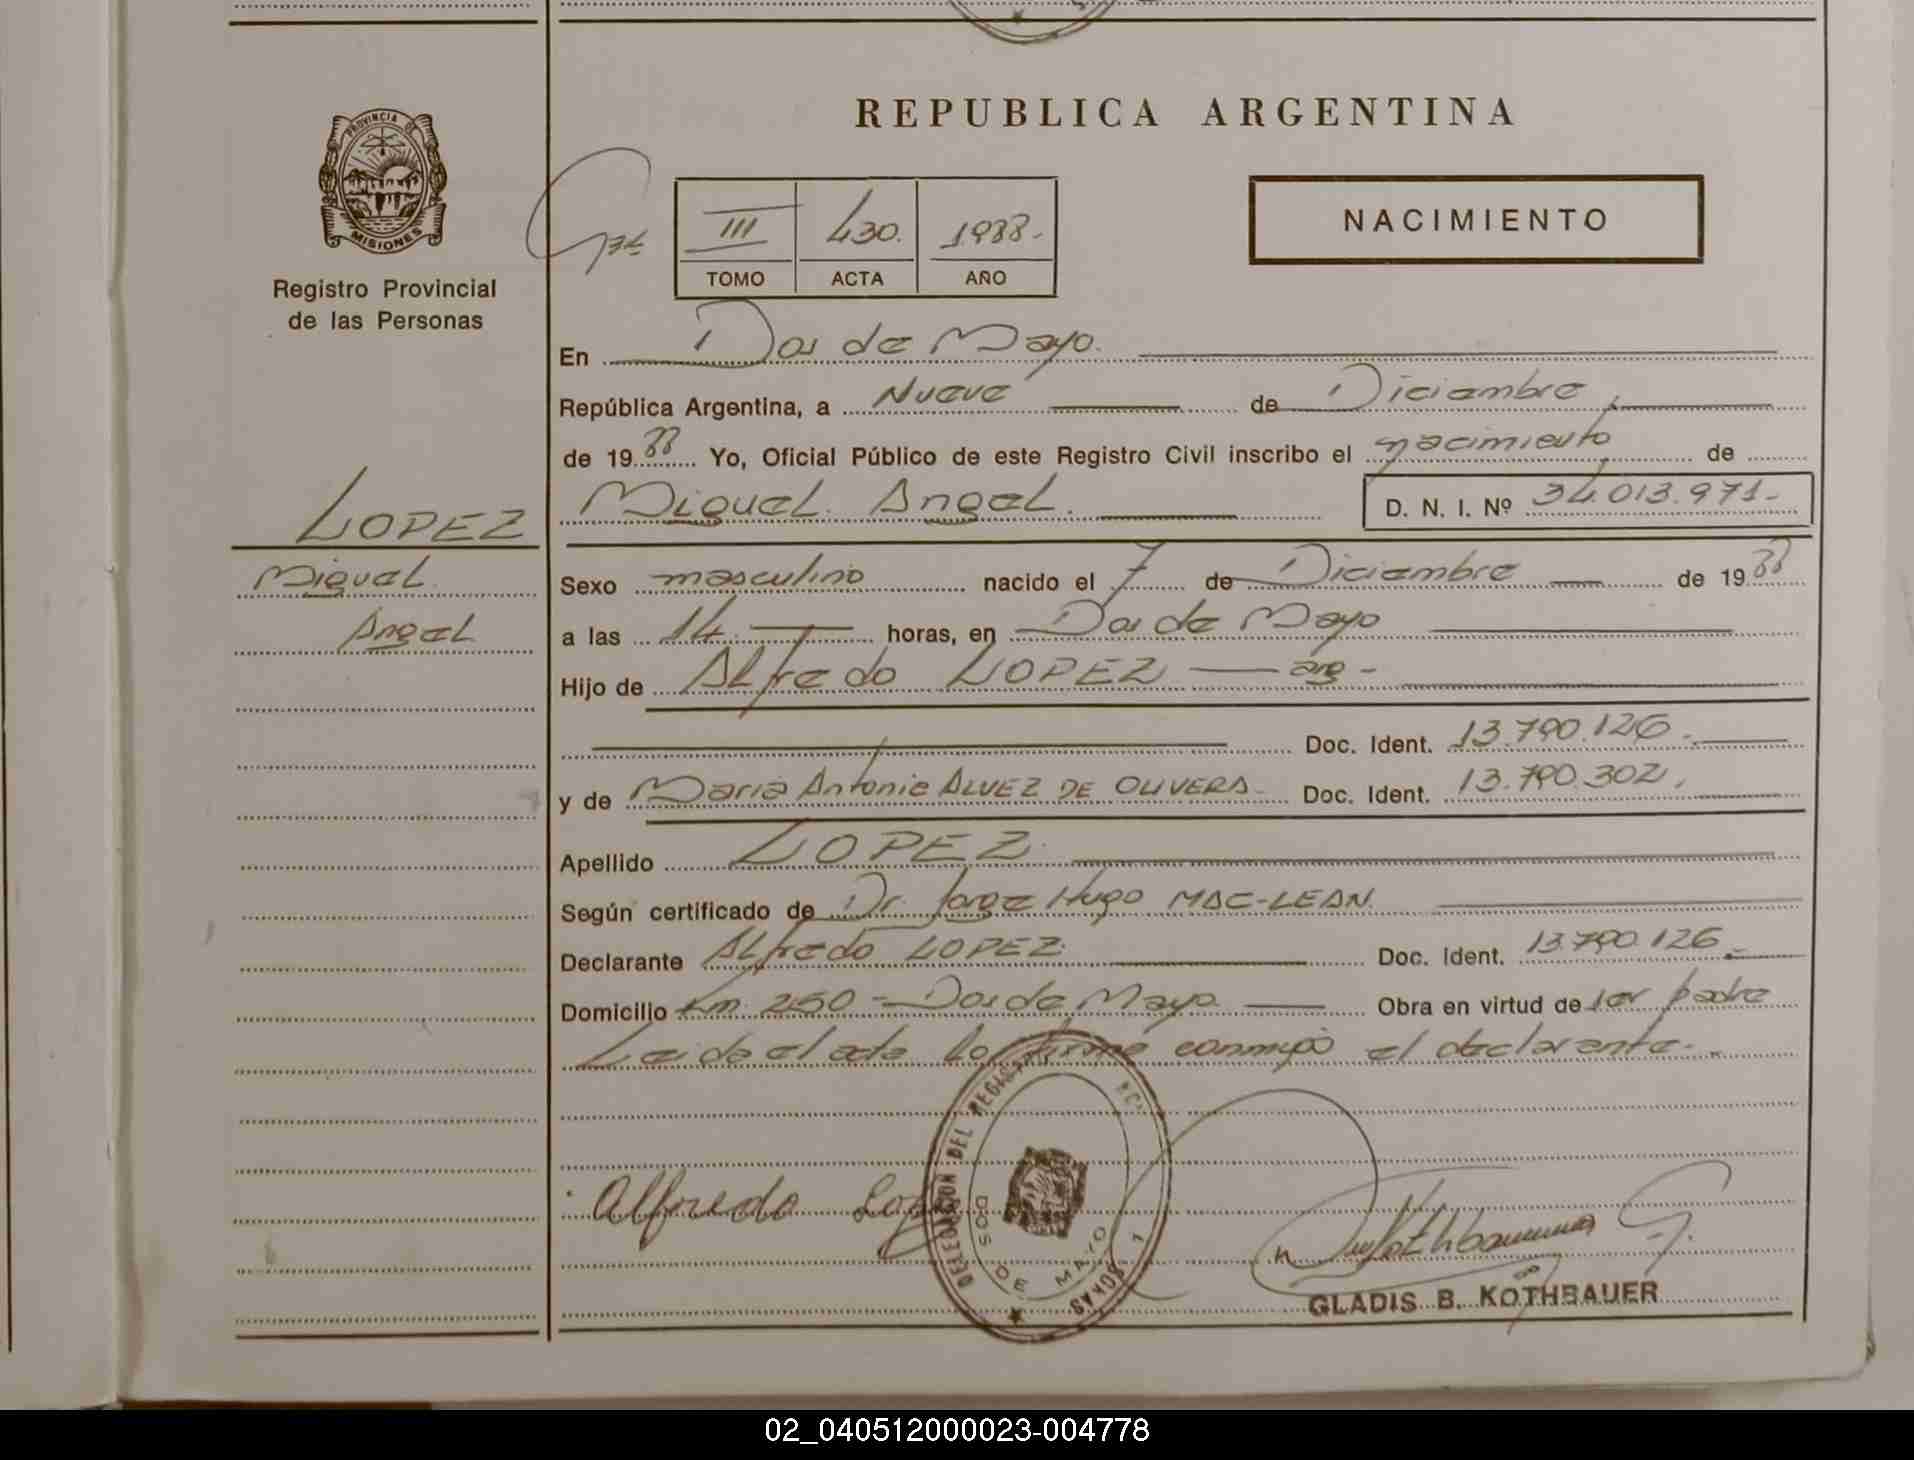 REPUBLICA ARGENTINA
PROVINCIA DE
MISIONES
Registro Provincial
de las Personas
III 430. 1988.-
TOMO ACTA AÑO
NACIMIENTO
En Dos de Mayo.
República Argentina, a Nueve de Diciembre,
de 19 88 Yo, Oficial Público de este Registro Civil inscribo el nacimiento de
LOPEZ
Miguel Angel
Miguel. Angel. D. N. I. Nº 34.013.971.-
Sexo masculino nacido el 7 de Diciembre de 19 88
a las 14 horas, en Dos de Mayo
Hijo de Alfredo LOPEZ — arg -
Doc. Ident. 13.790.126.
y de Maria Antonia ALVEZ DE OLIVERA Doc. Ident. 13.790.302.
Apellido LOPEZ
Según certificado de Dr. Jorge Hugo MAC-LEAN.
Declarante Alfredo LOPEZ Doc. Ident. 13.790.126
Domicilio Km. 250 - Dos de Mayo Obra en virtud de ser padre
Leida el acta la firmó conmigo el declarante.
Alfredo Lopez
DELEGACION DEL REGISTRO
DOS DE MAYO
GLADIS B. KOTHBAUER
02_040512000023-004778